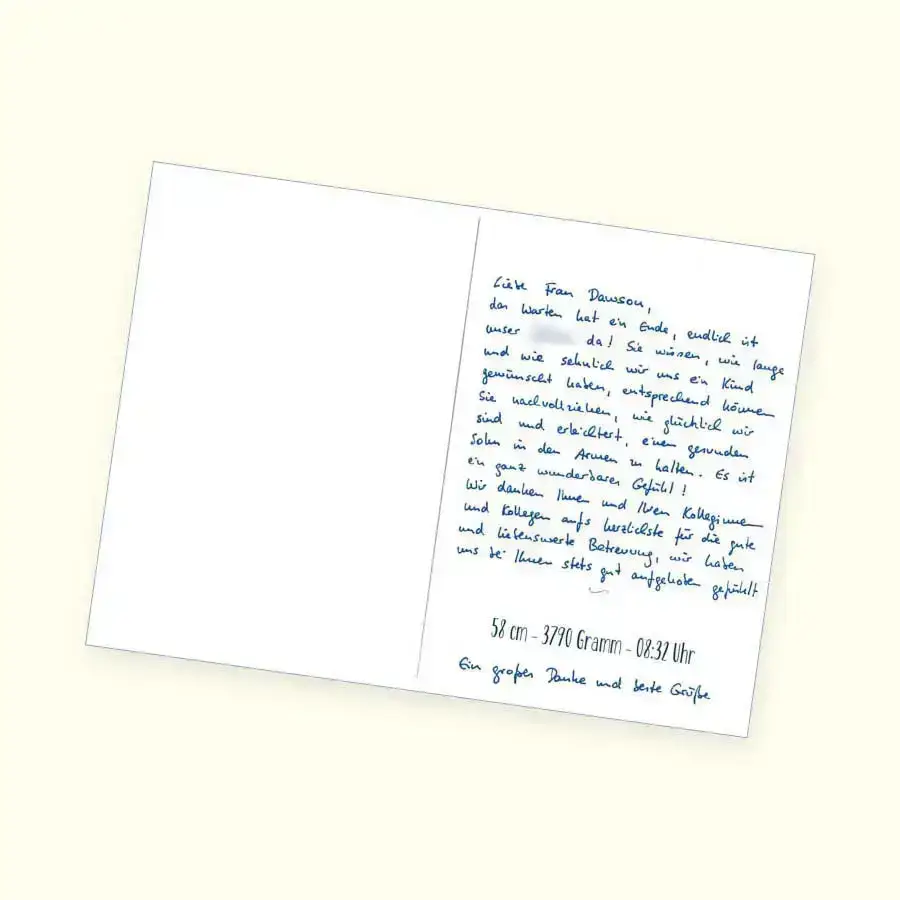 Liebe Frau Dawson,
das Warten hat ein Ende, endlich ist
unser da! Sie wissen, wie lange
und wie sehnlich wir uns ein Kind
gewünscht haben, entsprechend können
Sie nachvollziehen, wie glücklich wir
sind und erleichtert, einen gesunden
Sohn in den Armen zu halten. Es ist
ein ganz wunderbares Gefühl!
Wir danken Ihnen und Ihren Kolleginnen
und Kollegen aufs herzlichste für die gute
und liebenswerte Betreuung, wir haben
uns bei Ihnen stets gut aufgehoben gefühlt
58 cm - 3790 Gramm - 08:32 Uhr
Ein großes Danke und beste Grüße